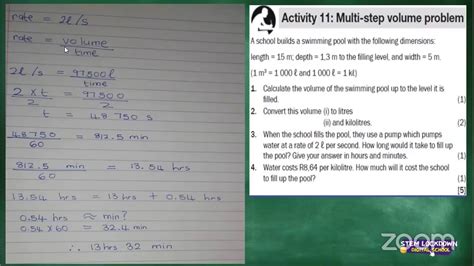 rate = 2l/s
rate = volume
time
2l/s = 97500l
time
2 × t = 97500
2 2
t = 48 750 s
48 750 = 812.5 min
60
812.5 min = 13.54 hrs
60
13.54 hrs = 13 hrs + 0.54 hrs
0.54 hrs ≈ min?
0.54 × 60 = 32.4 min
∴ 13 hrs 32 min
Activity 11: Multi-step volume problem
A school builds a swimming pool with the following dimensions:
length = 15 m; depth = 1,3 m to the filling level, and width = 5 m.
(1 m³ = 1 000 ℓ and 1 000 ℓ = 1 kl)
1. Calculate the volume of the swimming pool up to the level it is
filled. (1)
2. Convert this volume (i) to litres
(ii) and kilolitres. (2)
3. When the school fills the pool, they use a pump which pumps
water at a rate of 2 ℓ per second. How long would it take to fill
up the pool? Give your answer in hours and minutes. (1)
4. Water costs R8,64 per kilolitre. How much will it cost the school
to fill up the pool? (1)
[5]
zoom
STEM LOCKDOWN
DIGITAL SCHOOL